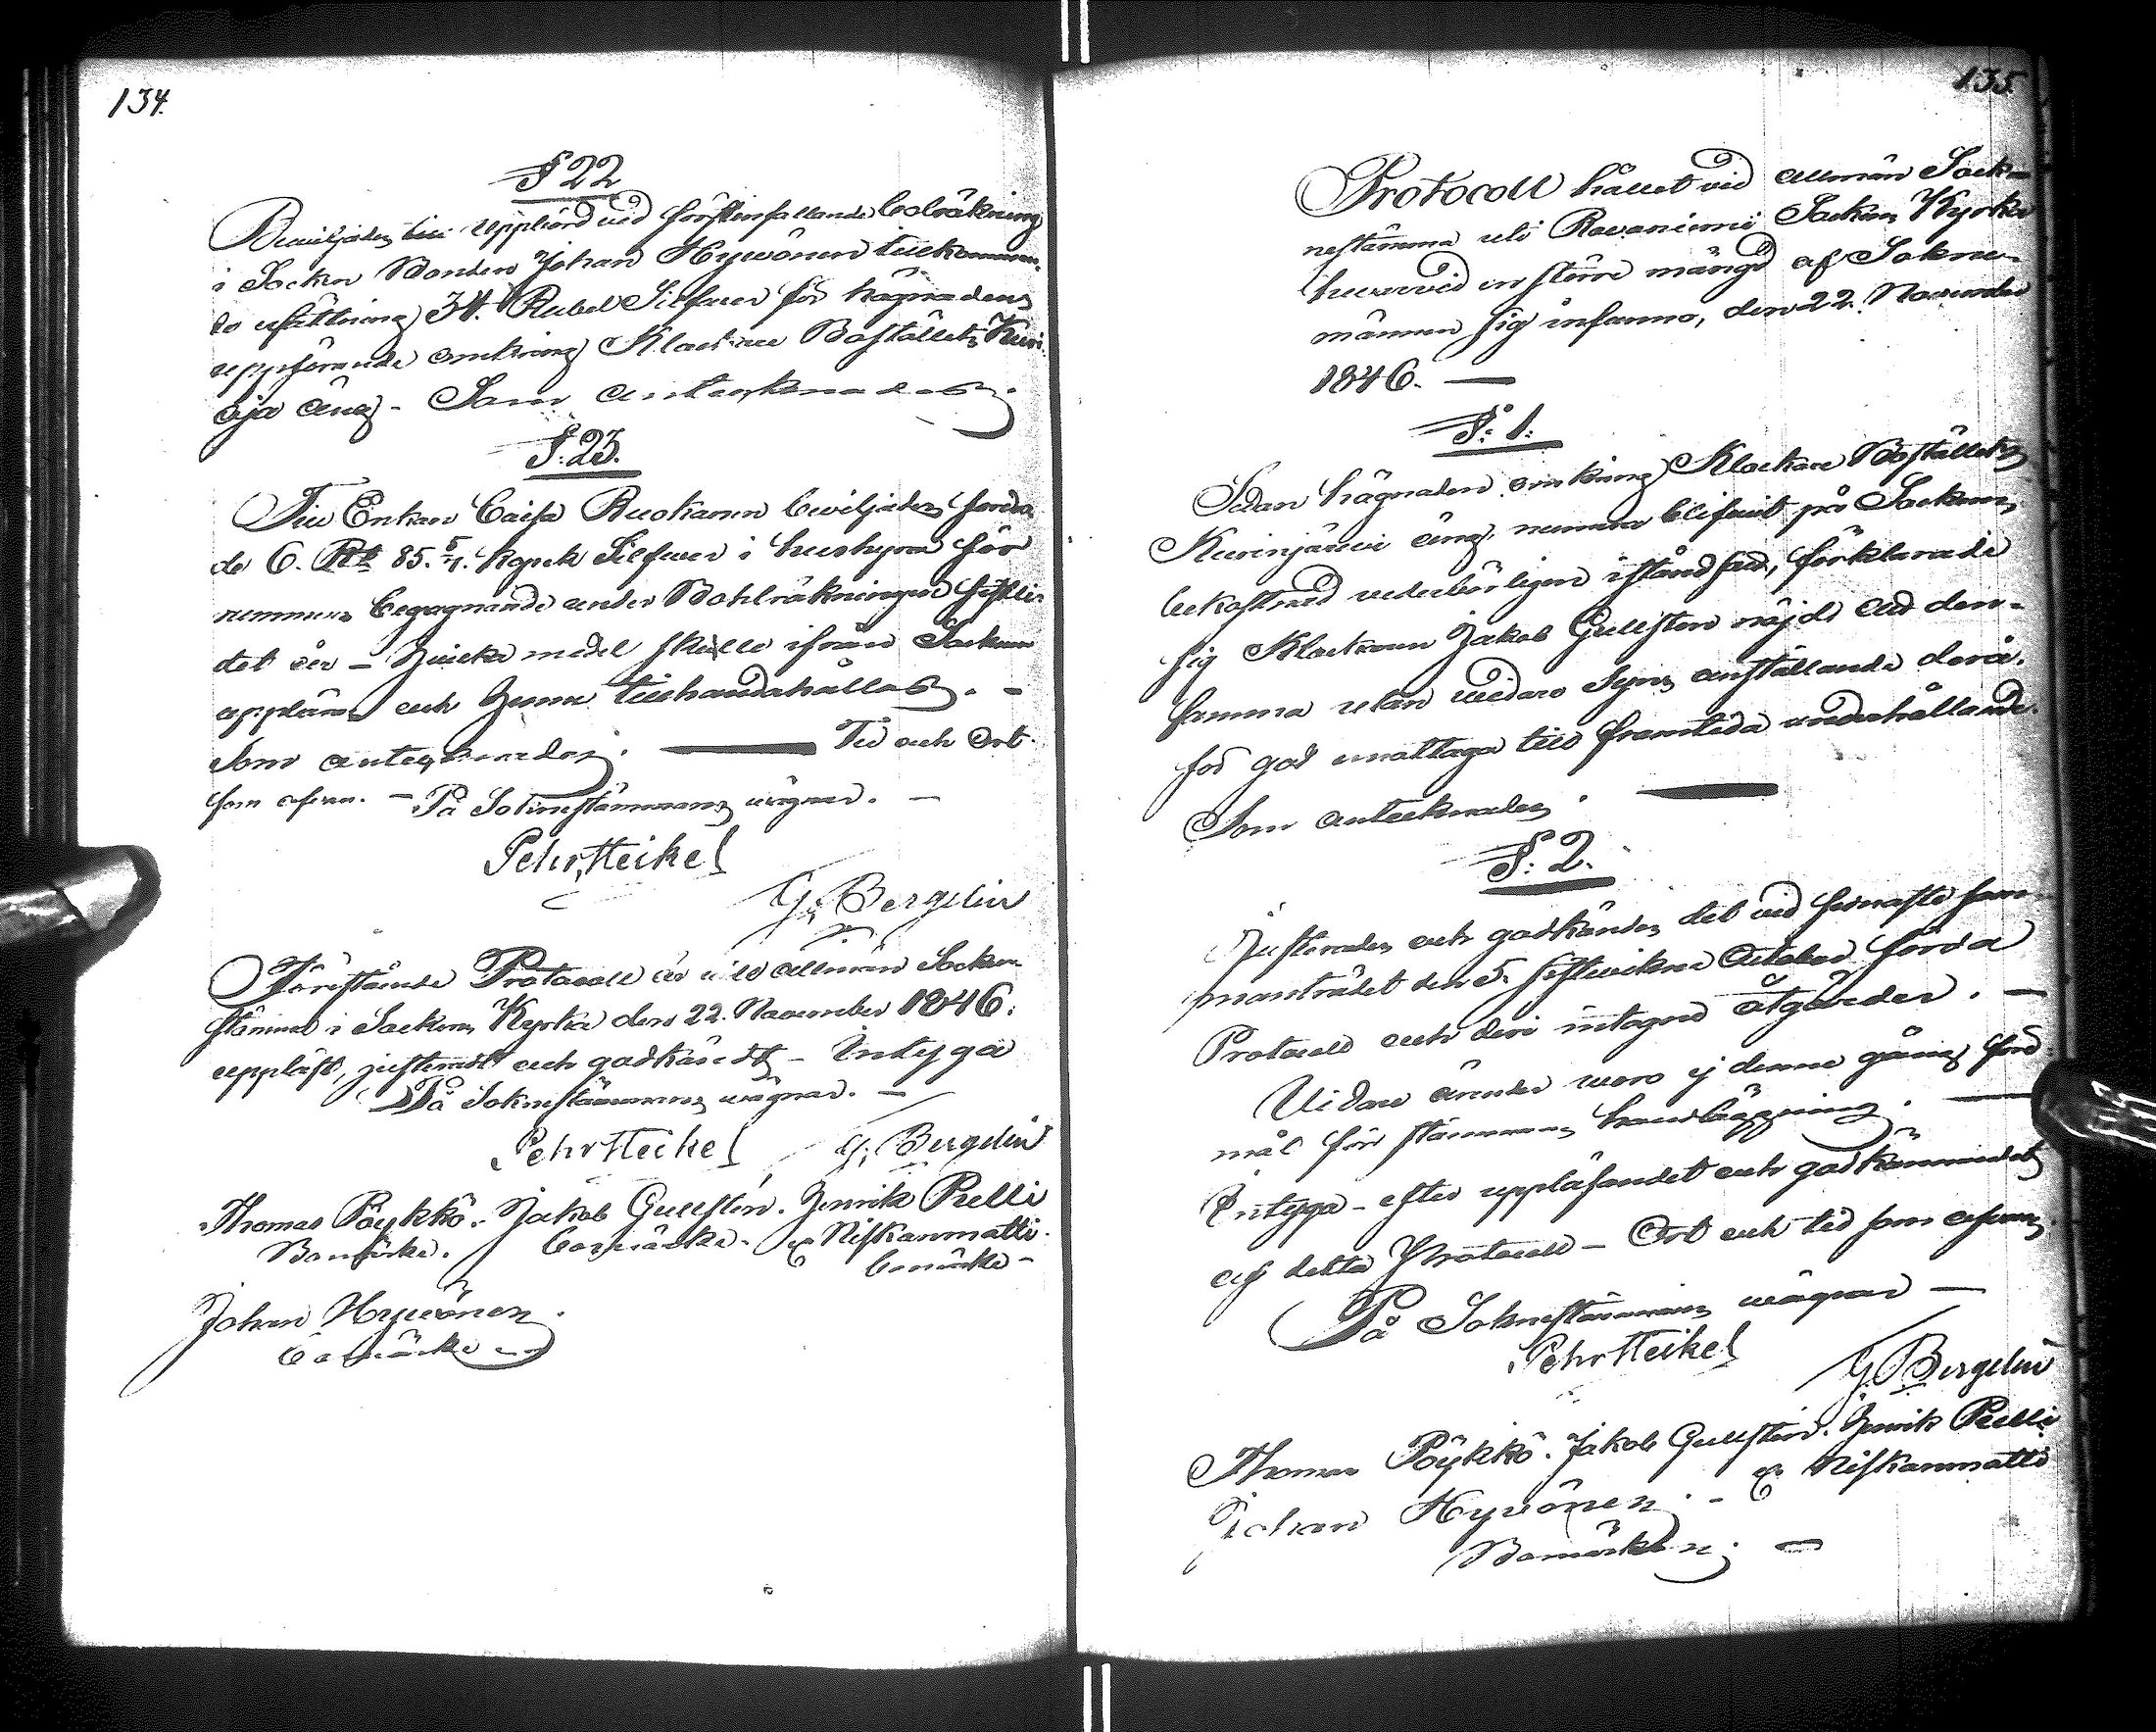 134.
§ 22
Beviljades till uppbörd vid förstinfallande bolräkning
i Socken Bonden Johan Hyvönen tillkomman-
de ersättning 34. Rubel Silfver för hägnadens
uppförande omkring Klockare Boställets Kuri-
oja äng. - Som antecknades.
§. 23.
Till Enkan Caisa Ruokanen beviljades fordra-
de 6. Rub 85. 5/7. kopek Silfver i hushyra för
rummens begagnande under Bohlräkningen sistli-
det år - Hvilka medel skulle ifrån Socknen
uppbäras och henne tillhandahållas. -
Som antecknades. — Tid och Ort
som ofvan. - På Soknestämmans vägnar. -
Pehr Heikel
G. Bergelin
Förestående Protocoll är vid allmän Sockne-
stämma i Sockens Kyrka den 22. November 1846.
uppläst, justeradt och godkändt - Intyga
På Soknestämmans vägnar. -
Pehr Heikel G. Bergelin
Thomas Pöykkö. Jakob Gullstén. Henrik Pelli
Bomärke. bomärke. E Niskanmatti.
bomärke -
Johan Hyvönen.
bomärke
135.
Protocoll hållet vid allmän Sock-
nestämma uti Rovaniemi Sockens Kyrka
hvarvid en större mängd af Sokne-
männen sig infunno, den 22. November
1846. —
§: 1:
Sedan hägnaden omkring Klockare Boställets
Kurinjärvi äng, numera blifvit på Sockens
bekostnad vederbörligen iståndsad, förklarade
sig Klockaren Jakob Gullsten nöjd att den-
samma utan vidare Syns anställande derå.
för god emottaga till framtida underhållande.
Som antecknades. —
§: 2.
Justerades och godkändes det vid sednaste sam-
manträdet den 5. sistvikne October förda
Protocoll och deri intagne åtgärder. -
Vidare ärender woro ej denne gång före-
mål för stämmans handläggning. —
Intyga - efter uppläsandet och godkännandet
af detta Protocoll - Ort och tid som ofvan
På Soknestämmans wägnar —
Pehr Heikel
G. Bergelin
Thomas Pöykkö. Jakob Gullstén. Henrik Pelli
Johan Hyvönen. - E Niskanmatti
Bomärken. —